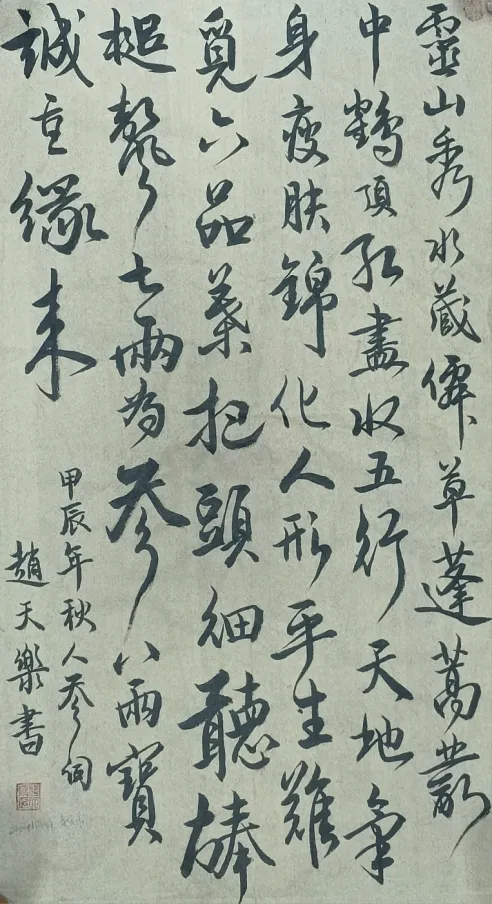 靈山秀水藏僊草蓬蒿叢
中鶴頂紅盡收五行天地氣
身瘦肤錦化人形平生難
覓六品葉把頭細聽棒
槌聲七兩為參八兩寶
誠重緣来
甲辰年秋人參詞
趙天樂書